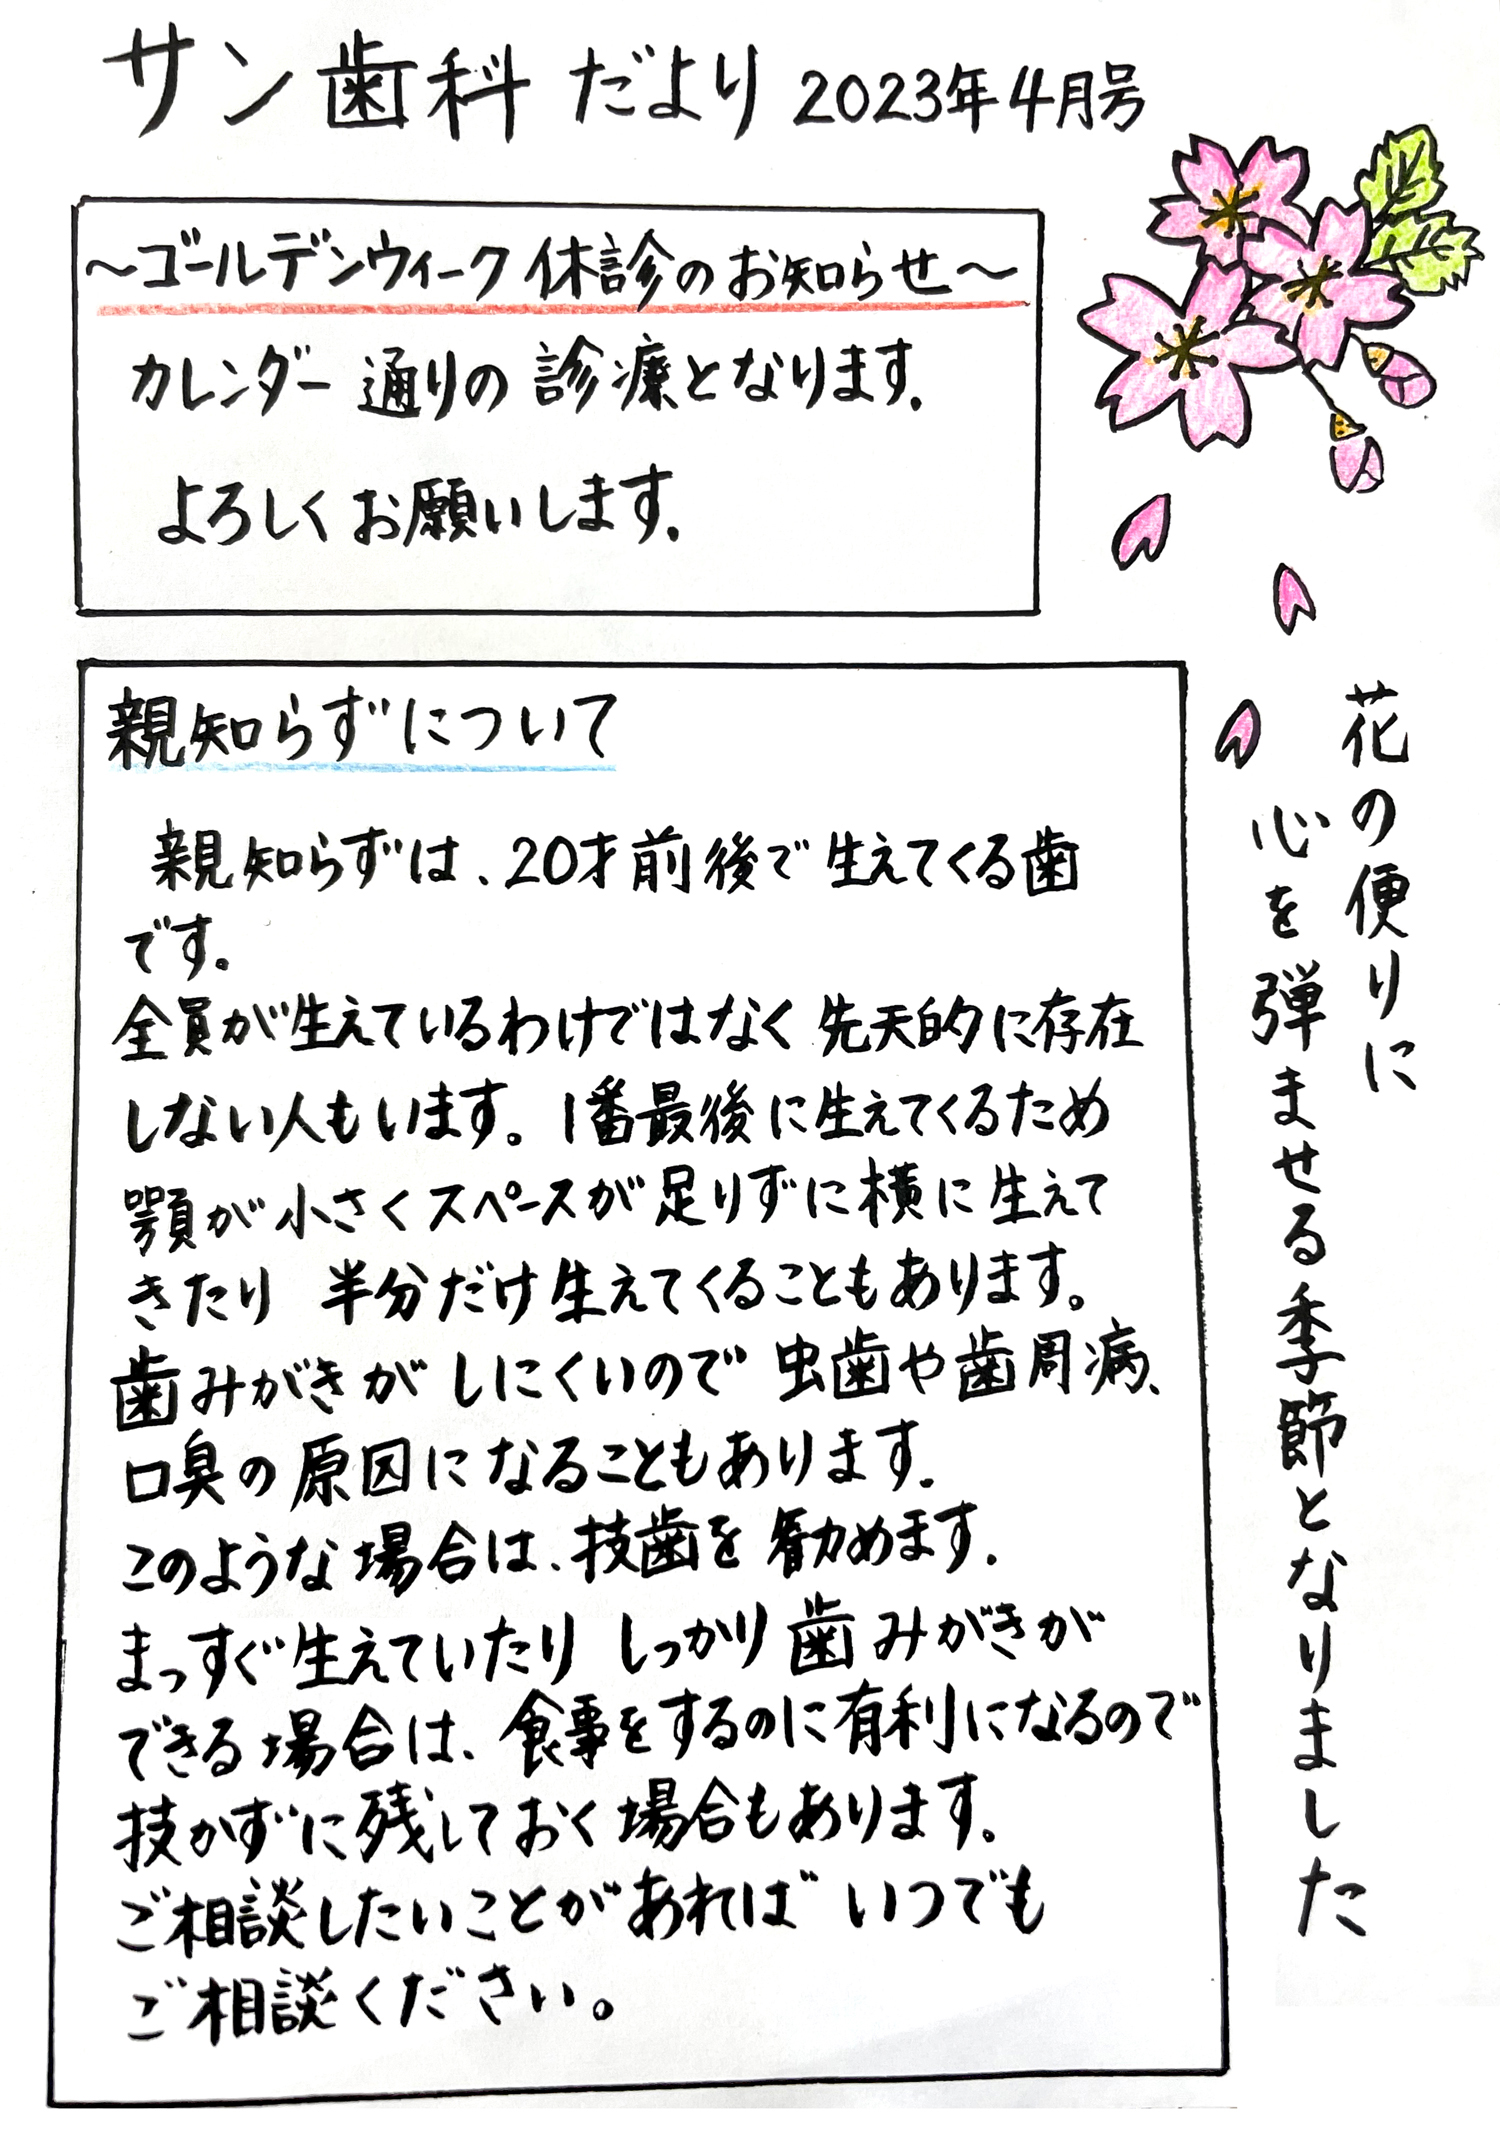 サン歯科だより 2023年4月号
～ゴールデンウィーク休診のお知らせ～
カレンダー通りの診療となります.
よろしくお願いします.
花の便りに
心を弾ませる季節となりました
親知らずについて
親知らずは、20才前後で生えてくる歯
です。
全員が生えているわけではなく先天的に存在
しない人もいます。1番最後に生えてくるため
顎が小さくスペースが足りずに横に生えて
きたり 半分だけ生えてくることもあります。
歯みがきがしにくいので虫歯や歯周病、
口臭の原因になることもあります.
このような場合は、技歯を勧めます.
まっすぐ生えていたりしっかり歯みがきが
できる場合は、食事をするのに有利になるので
技かずに残しておく場合もあります.
ご相談したいことがあれば いつでも
ご相談ください。